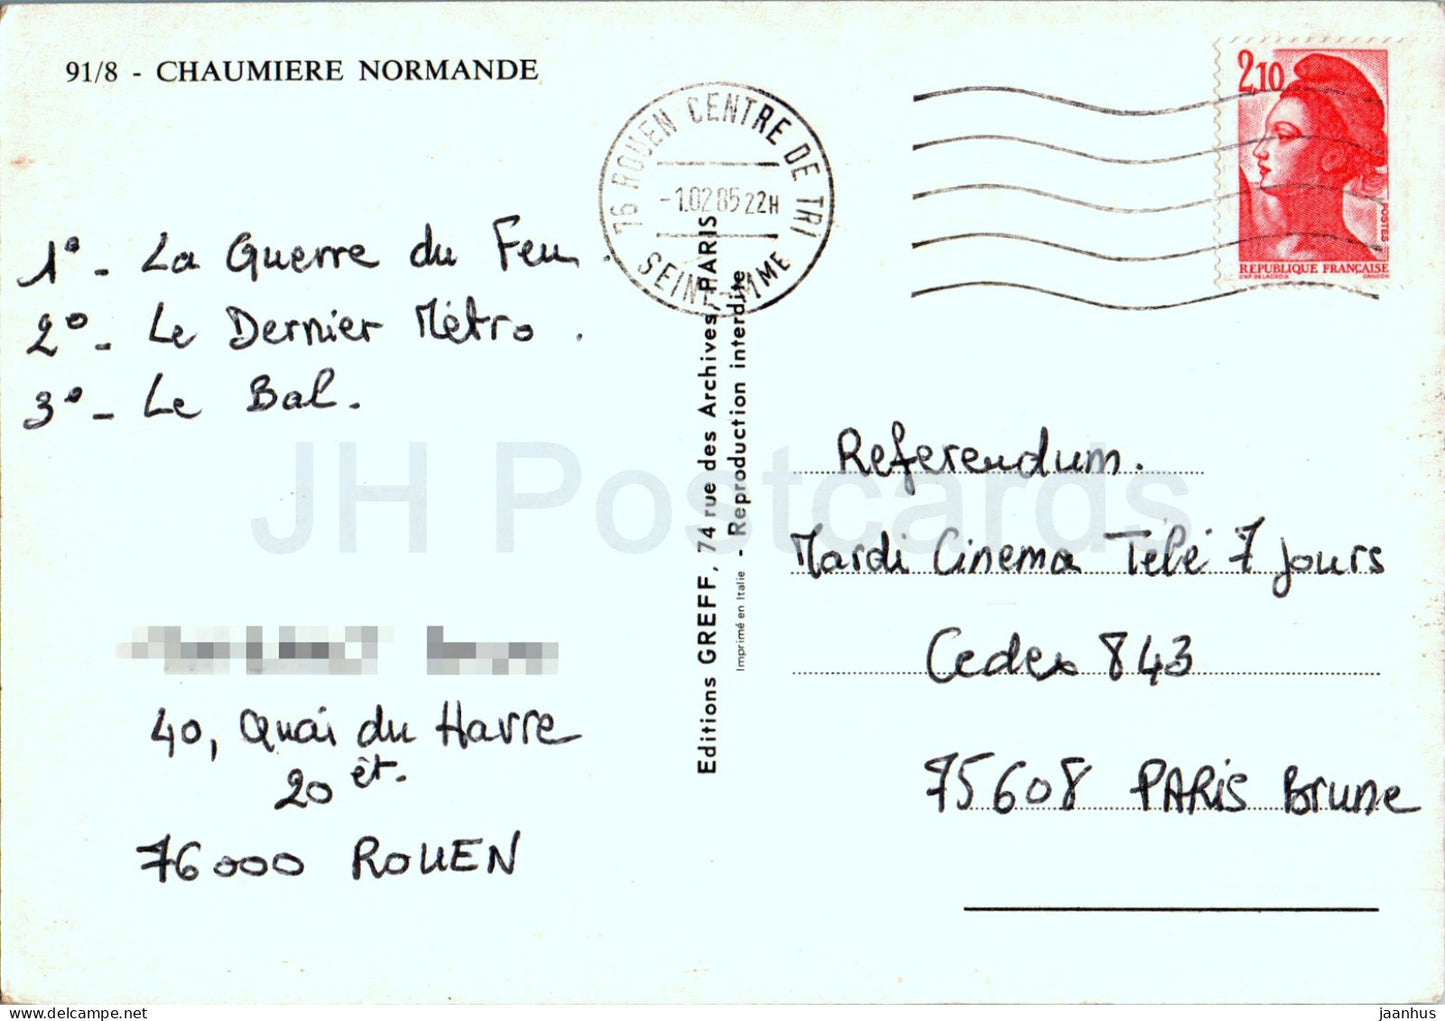 91/8 - CHAUMIERE NORMANDE
76 ROUEN CENTRE DE TRI
-1.02 85 22H
SEINE-MME
2,10
POSTES
REPUBLIQUE FRANCAISE
1° - La Guerre du Feu.
2° - Le Dernier Métro.
3° - Le Bal.
40, Quai du Havre
20 ét.
76000 ROUEN
Editions GREFF, 74 rue des Archives, PARIS
Imprimé en Italie - Reproduction interdite
Referendum.
Mardi Cinema Télé 7 Jours
Cedex 843
75608 PARIS Brune
JH Postcards
delcampe.net
jaanhus